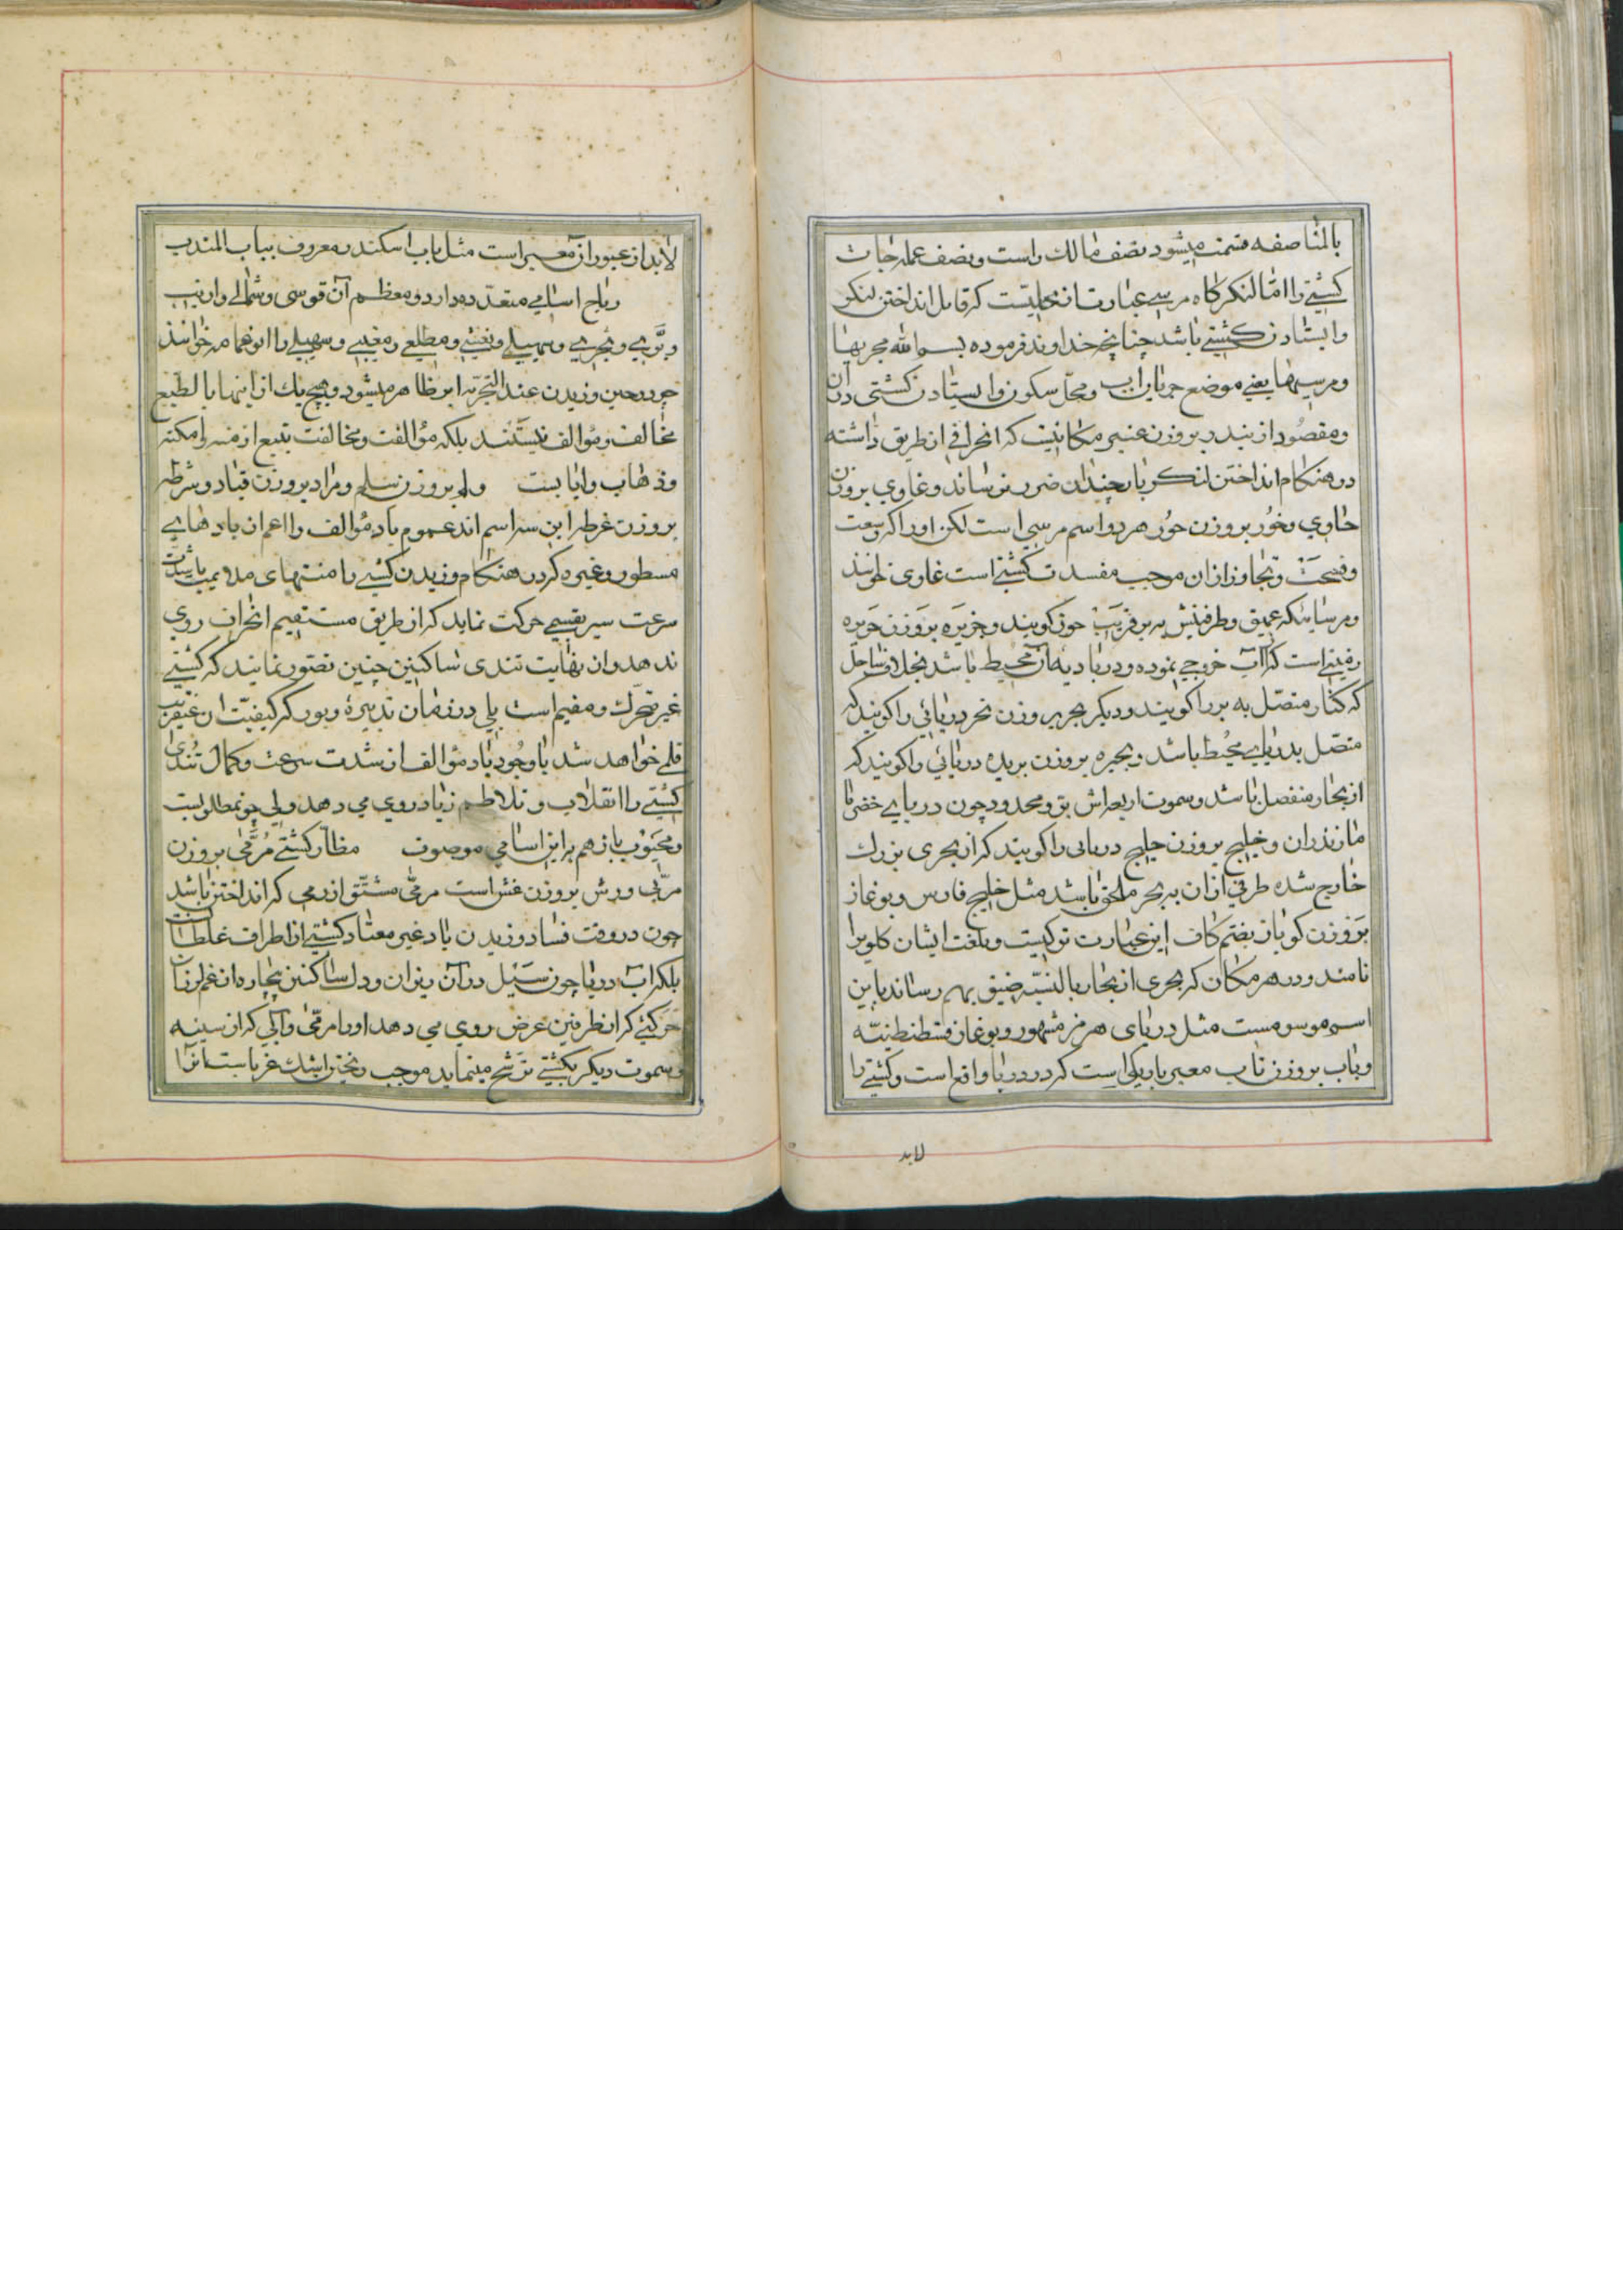 بالمناصفه قسمت میشود نصف مالک راست و نصف عمله‌جات
کشتی را امّا لنکرکاه مرسی عبارت از محلیست که قابل انداختن لنکر
و ایستادن کشتی باشد چنانچه خداوند فرموده بسم الله مجریها
و مرسیها یعنی موضع جریان آب و محل سکون و ایستادن کشتی در آن
و مقصود از بندر بروزن عنبر مکانیست که انحرافی از طریق داشته
در هنکام انداختن لنکر باد چندان ضرر نرساند و غاوی بروزن
حاوی و خور بروزن حور هر دو اسم مرسی است لکن او را که وسعت
و فسحت و تجاوز از آن موجب مفسدت کشتی است غاوی خوانند
و مرسائیکه عمیق و طرفینش به بر قریب خور کویند و جزیره بروزن حریره
زمینی است که از آب خروجی نموده و دریا دیه از محیط باشد بخلاف ساحل
که کنار متصل به بر را کویند و دیکر بحر بروزن نحر دریائی را کویند که
متصل بدریای محیط باشد و بحیره بروزن بریده دریائی را کویند که
از بحار منفصل باشد و سموت اربعه‌اش بر و محدود چون دریای خضر یا
مازندران و خلیج بروزن خلیج دریائی را کویند که از بحری بزرک
خارج شده طرفی از آن ببحر ملحق باشد مثل خلیج فارس و بوغاز
بروزن کوباز بضم کاف این عبارت ترکیست و بلغت ایشان کلو را
نامند و در هر مکان که بحری از بحار بالنسبه ضیق بهم رساند باین
اسم موسومست مثل دریای هرمز مشهور و بوغاز قسطنطنیّه
و باب بروزن ناب معبر باریکی است که در دریا واقع است و کشتی را
لابد
لابد از عبور از آن معبر است مثل باب اسکندر معروف بباب المندب
ریاح اسامی متعدده دارد و معظم آن قوسی و شمالی و ازیب
و برّی و بحری و سهیلی و نعشی و مطلعی و مغیبی و سهیلی را انوهام هم خوانند
چون در حین وزیدن عند التجربه ابر ظاهر میشود و هیچ یک از اینها بالطبع
مخالف و مؤالف نیستند بلکه مؤالفت و مخالفت بتبع از منه و امکنه
و ذهاب و ایابست و لم بروزن سلم و مراد بروزن قباد و شرطه
بروزن غرطه این سه اسم‌اند عموم باد مؤالف را اعم از بادهای
مسطور و غیره که در هنکام وزیدن کشتی را منتهای ملایمت باشدت
سرعت سیر بقسمی حرکت نماید که از طریق مستقیم انحراف روی
ندهد و از نهایت تندی ساکنین چنین تصور نمایند که کشتی
غیر متحرک و مقیم است بلی در زمان تدبیره و بور که کیفیت آن عنقریب
قلمی خواهد شد با وجود باد مؤالف از شدت سرعت و کمال تندی
کشتی را انقلاب و تلاطم زیاد روی می دهد ولی چون مطلوبست
و محبوب باز هم بر این اسامی موصوف مظار کشتی مرمّی بروزن
مربّی و رش بروزن غش است مرمّی مشتق از رمی که انداختن باشد
چون در وقت فساد و زیدن باد غیر معتاد کشتی از اطراف غلطانست
بلکه آب دریا چون سیل در آن ریزان و دل ساکنین بیچاره از غم لرزان
حرکتی که از طرفین عرض روی می دهد او را مرمّی و آبی که از سینه
و سموت دیکر بکشتی ترشح مینماید موجب ریختن اشک غرباست آنرا